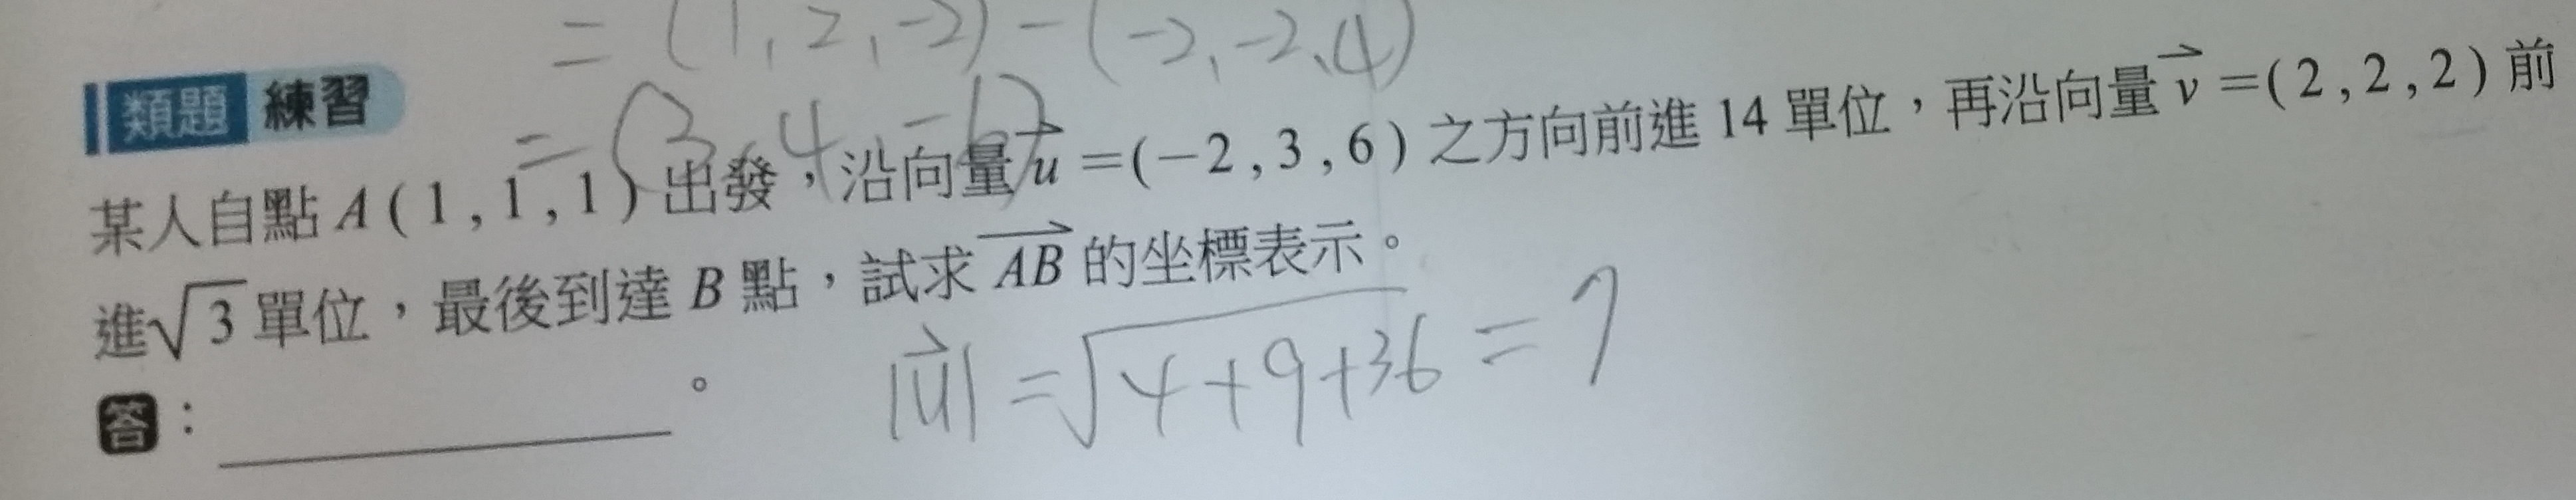 = (1, 2, -2) - (-2, -2, 4)
類題 練習
= (3, 4, -6)
某人自點 A ( 1 , 1 , 1 ) 出發，沿向量 u⃗ =(−2 , 3 , 6 ) 之方向前進 14 單位，再沿向量 v⃗ =( 2 , 2 , 2 ) 前
進√3 單位，最後到達 B 點，試求 AB⃗ 的坐標表示。
|u⃗| = √4+9+36 = 7
答：　　　　。